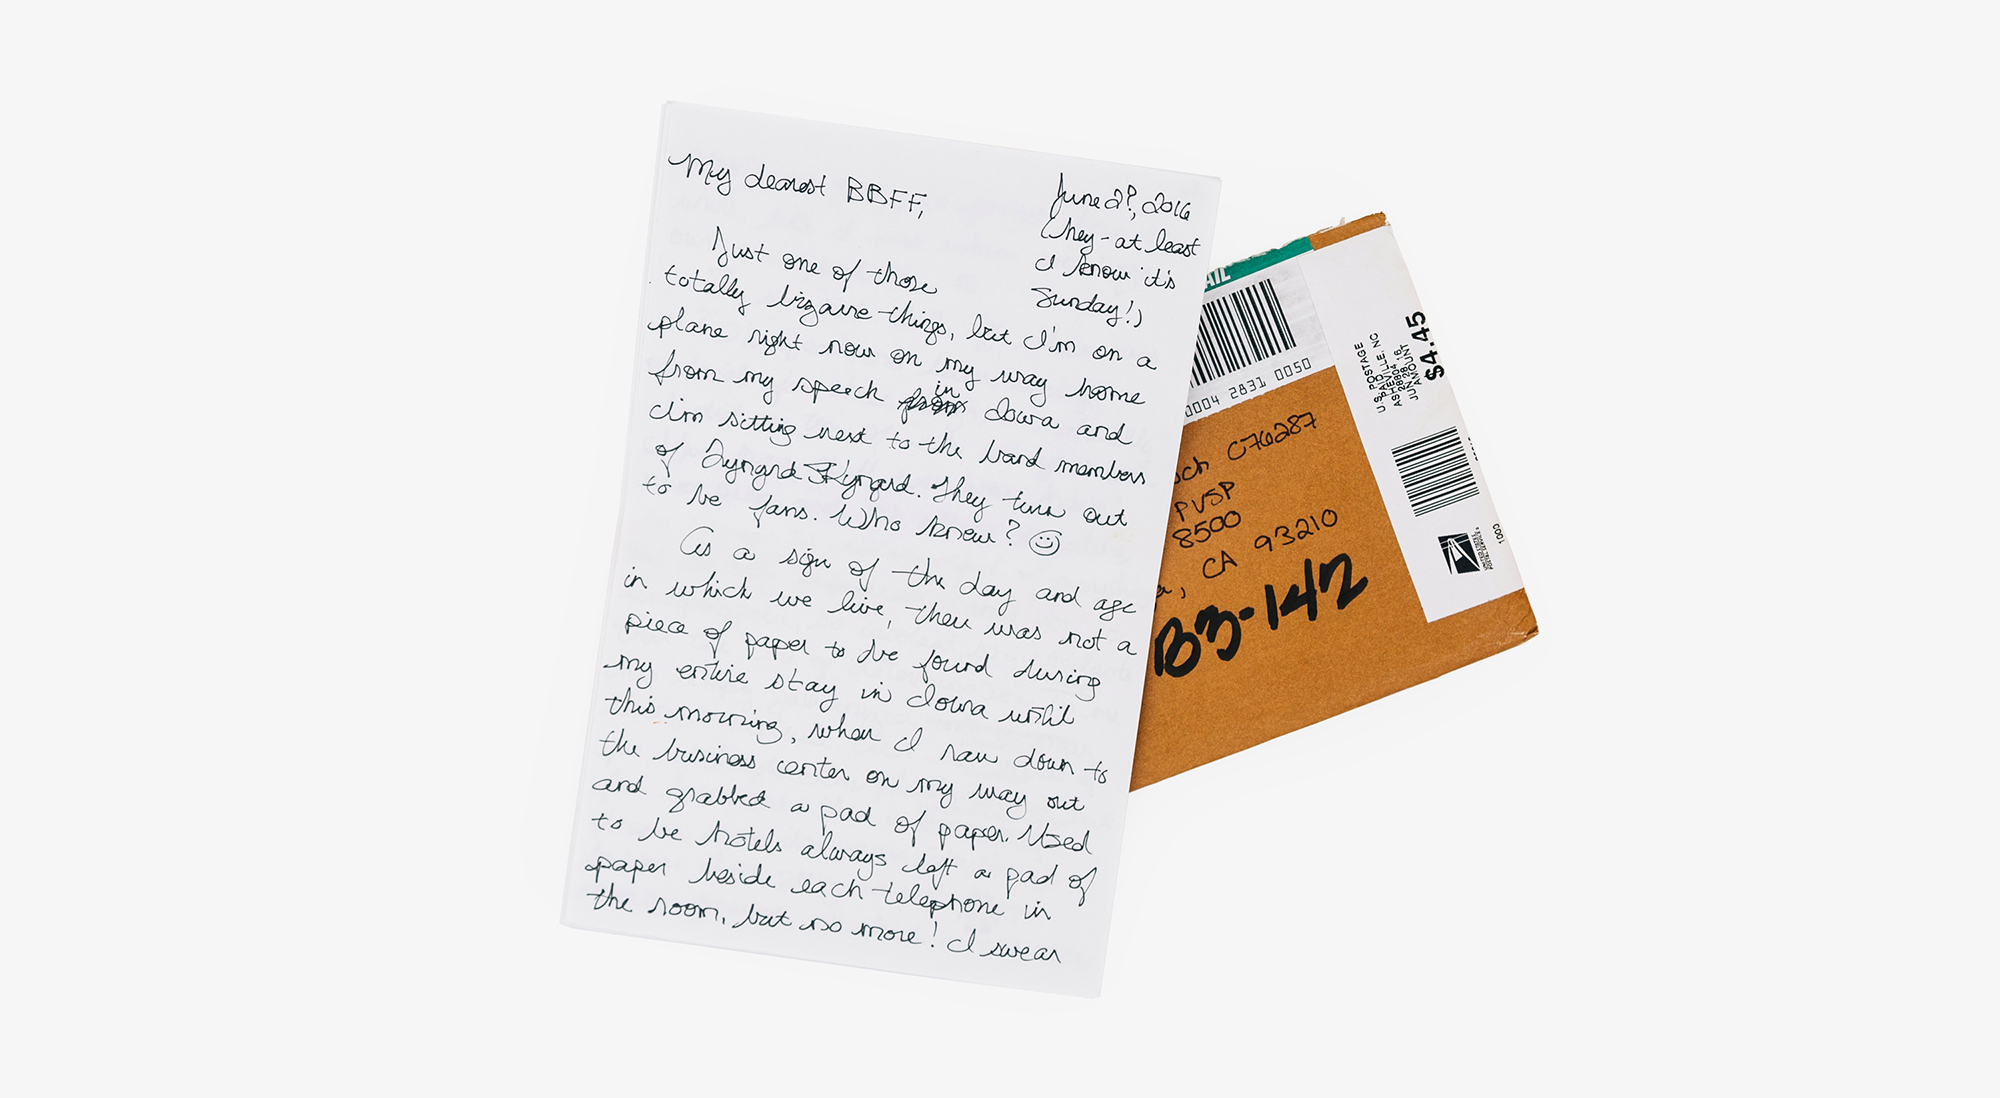 My dearest BBFF,
June 2?, 2016
(hey - at least
I know it's
Sunday!)
Just one of those
totally bizarre things, but I'm on a
plane right now on my way home
from my speech in Iowa and
I'm sitting next to the band members
of Lynyrd Skynyrd. They turn out
to be fans. Who knew? ☺
As a sign of the day and age
in which we live, there was not a
piece of paper to be found during
my entire stay in Iowa until
this morning, when I ran down to
the business center on my way out
and grabbed a pad of paper. Used
to be hotels always left a pad of
paper beside each telephone in
the room, but no more! I swear
AIL
0004 2831 0050
ch C76287
PVSP
8500
a, CA 93210
B3-142
U.S. POSTAGE
PAID
ASHEVILLE, NC
28804
JUN 28, 16
AMOUNT
$4.45
1000